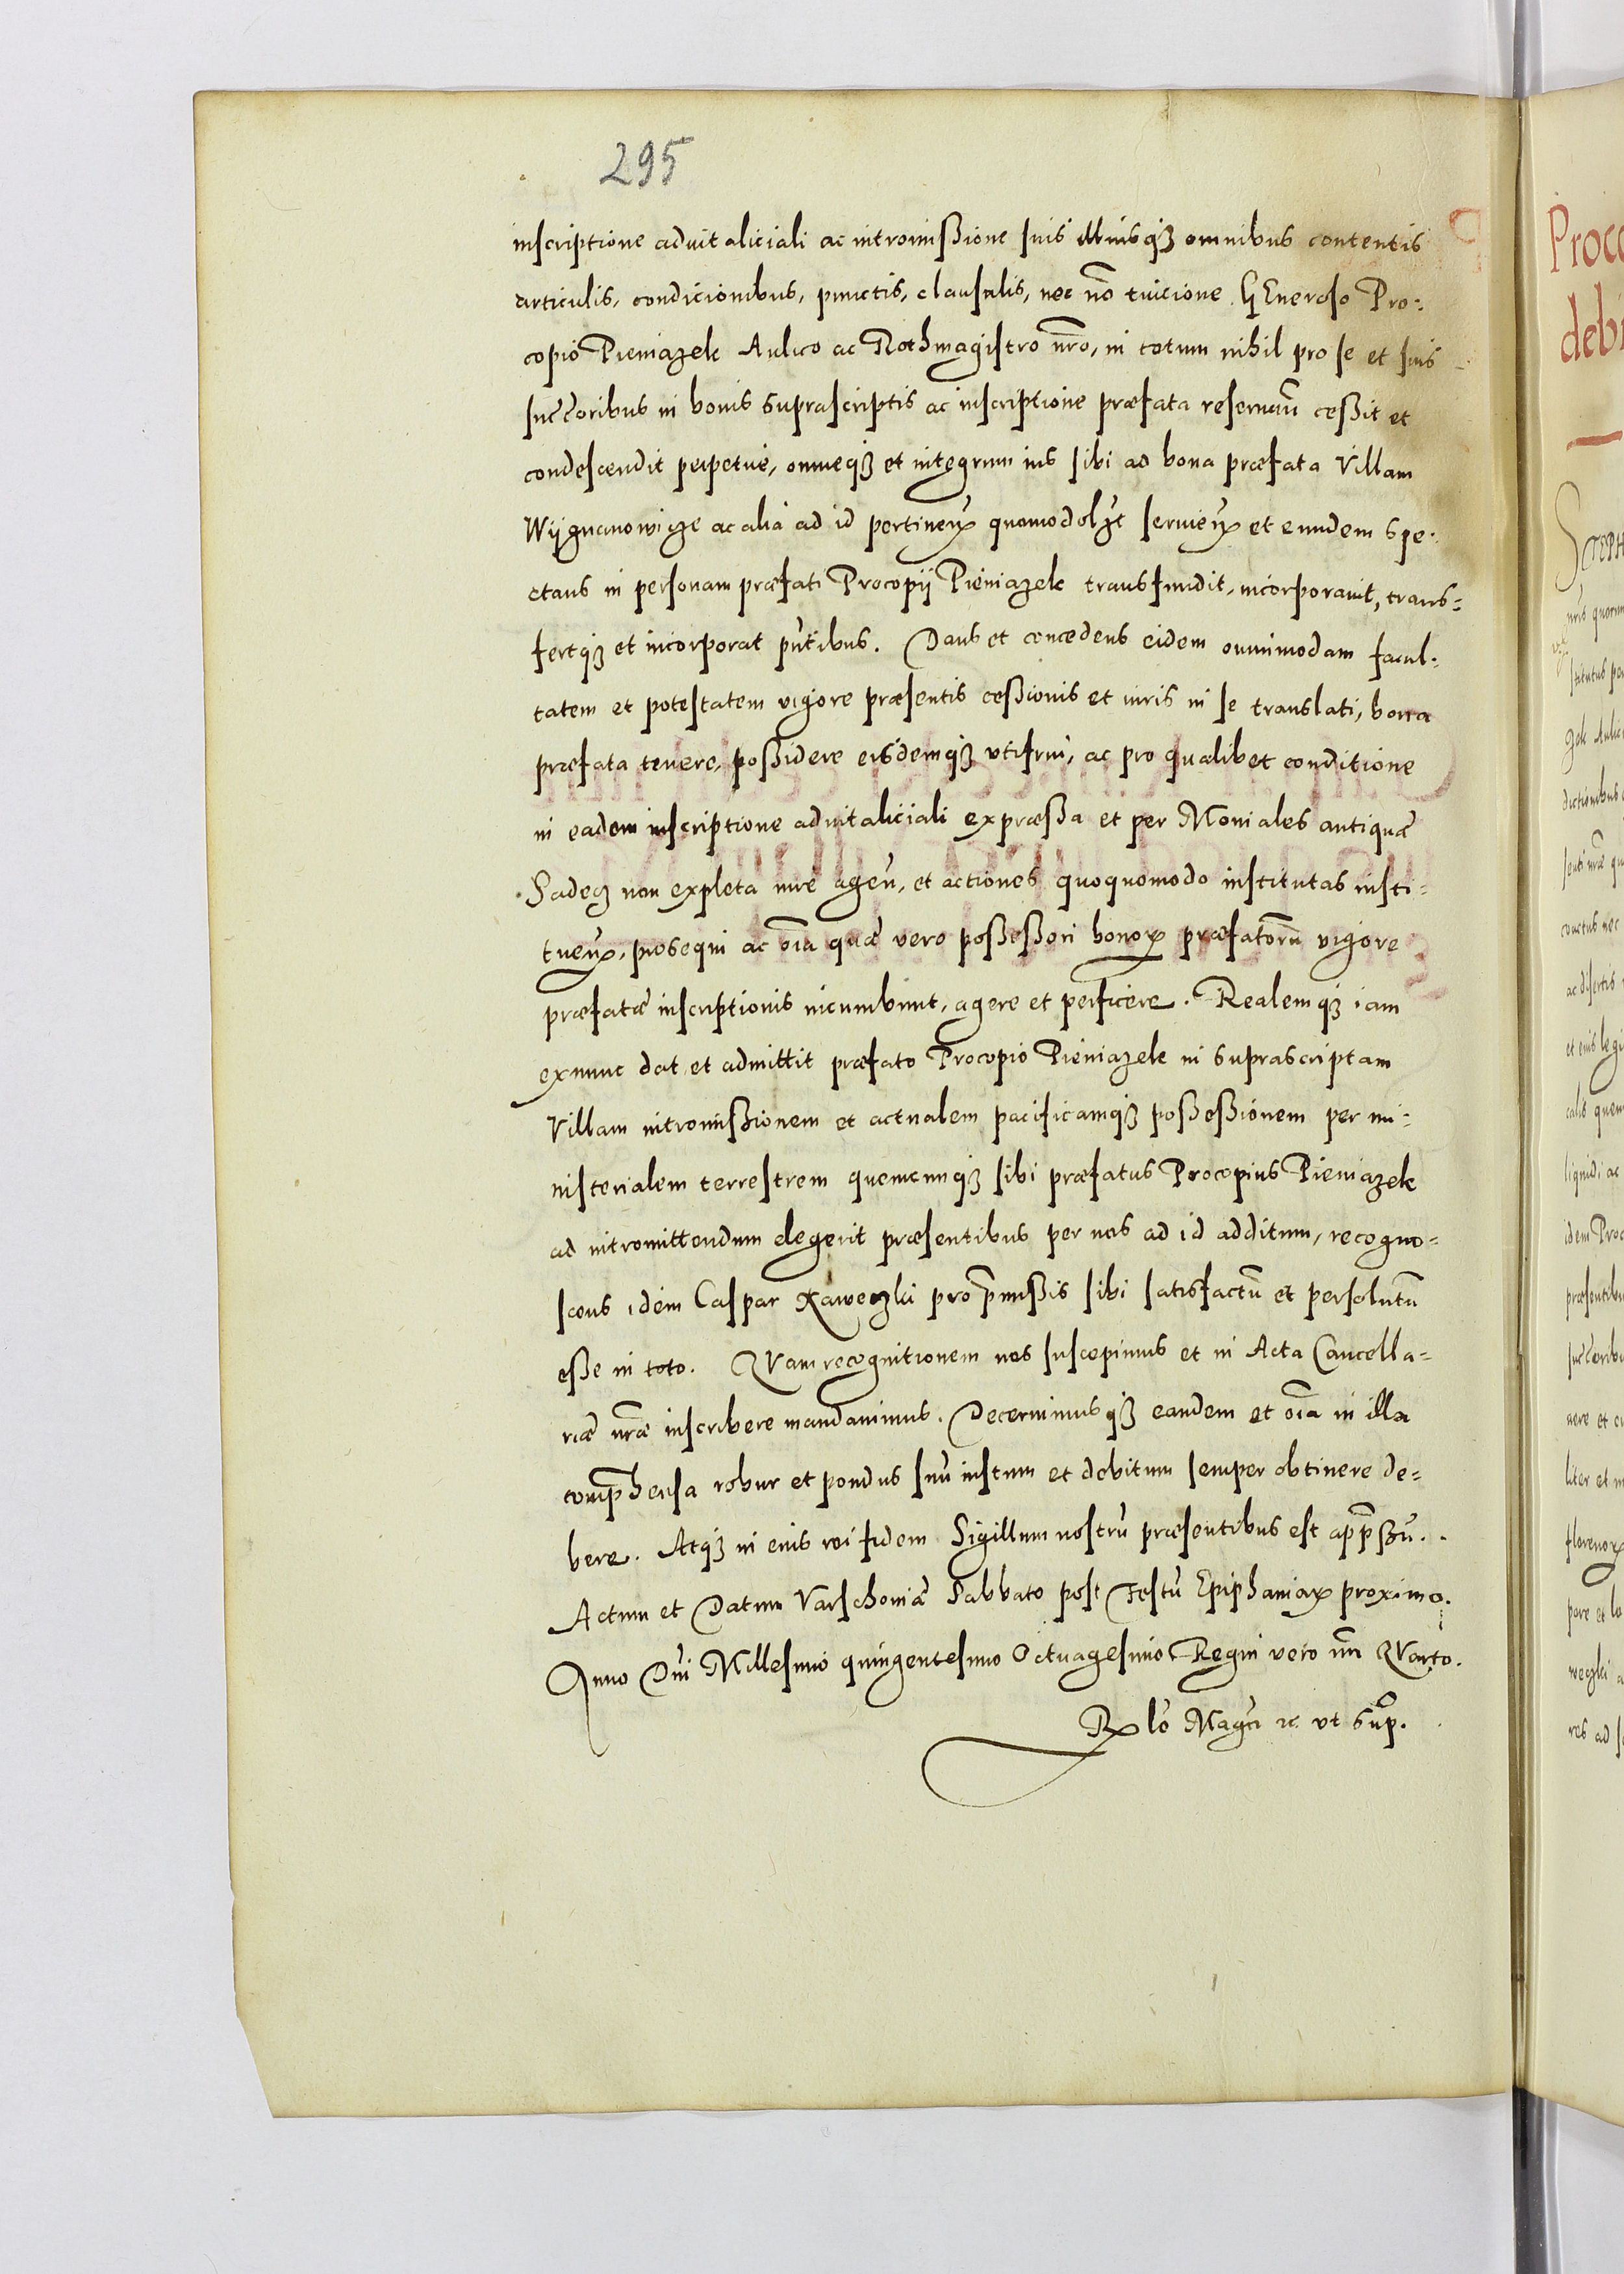 295
inscriptione aduitaliciali ac intromißione suis illiusqꝫ omnibus contentis
articulis, condicionibus, punctis, clausulis, nec nō tuicione GEneroso Pro:
copio Pieniazek Aulico ac Rothmagistro nr̃o, in totum nihil pro se et suis
succ̃oribus in bonis suprascriptis ac inscriptione præfata reseruan̄ ceßit et
condescendit perpetue, omneqꝫ et integrum ius sibi ad bona præfata Villam
Wijgnanowicze ac alia ad id pertineñ quomodolȝt serueñ et eundem spe:
ctans in personam præfati Procopij Pieniazek transfundit, incorporauit, trans=
fertqꝫ et incorporat pñtibus. Dans et concedens eidem omnimodam facul:
tatem et potestatem vigore præsentis ceßionis et iuris in se translati, bona
præfata tenere, poßidere eisdemqꝫ vtifrui, ac pro qualibet conditione
in eadem inscriptione aduitaliciali expræßa et per Moniales antiquæ
Sadecz non expleta iure agen̄, et actiones quoquomodo institutas insti=
tueñ, prosequi ac oı̃a quæ vero poßeßori bonoꝝ præfatorū vigore
præfatæ inscriptionis incumbunt, agere et perficere. Realemqꝫ iam
exnunc dat et admittit præfato Procopio Pieniazek in suprascriptam
Villam intromißionem et actualem pacificamqꝫ poßeßionem per mi=
nisterialem terrestrem quemcunqꝫ sibi præfatus Procopius Pieniazek
ad intromittendum elegerit præsentibus per nos ad id additum, recogno=
scens idem Caspar Kaweczki pro p̄mißis sibi satisfactū et persolutū
eße in toto. QVam recognitionem nos suscepimus et in Acta Cancella=
riæ nr̃æ inscribere mandauimus. Decernimusqꝫ eandem et oı̃a in illa
comp̄hensa robur et pondus suū iustum et debitum semper obtinere de=
bere. Atqꝫ in eius rei fidem Sigillum nostrū præsentibus est app̄ßū.
Actum et Datum Varschouiæ Sabbato post Festū Epiphaniaꝝ proximo.
Anno Dñi Millesimo quingentesimo Octuagesimo Regni vero nr̃i QVarto.
Rlō Magci ꝛc vt sup.